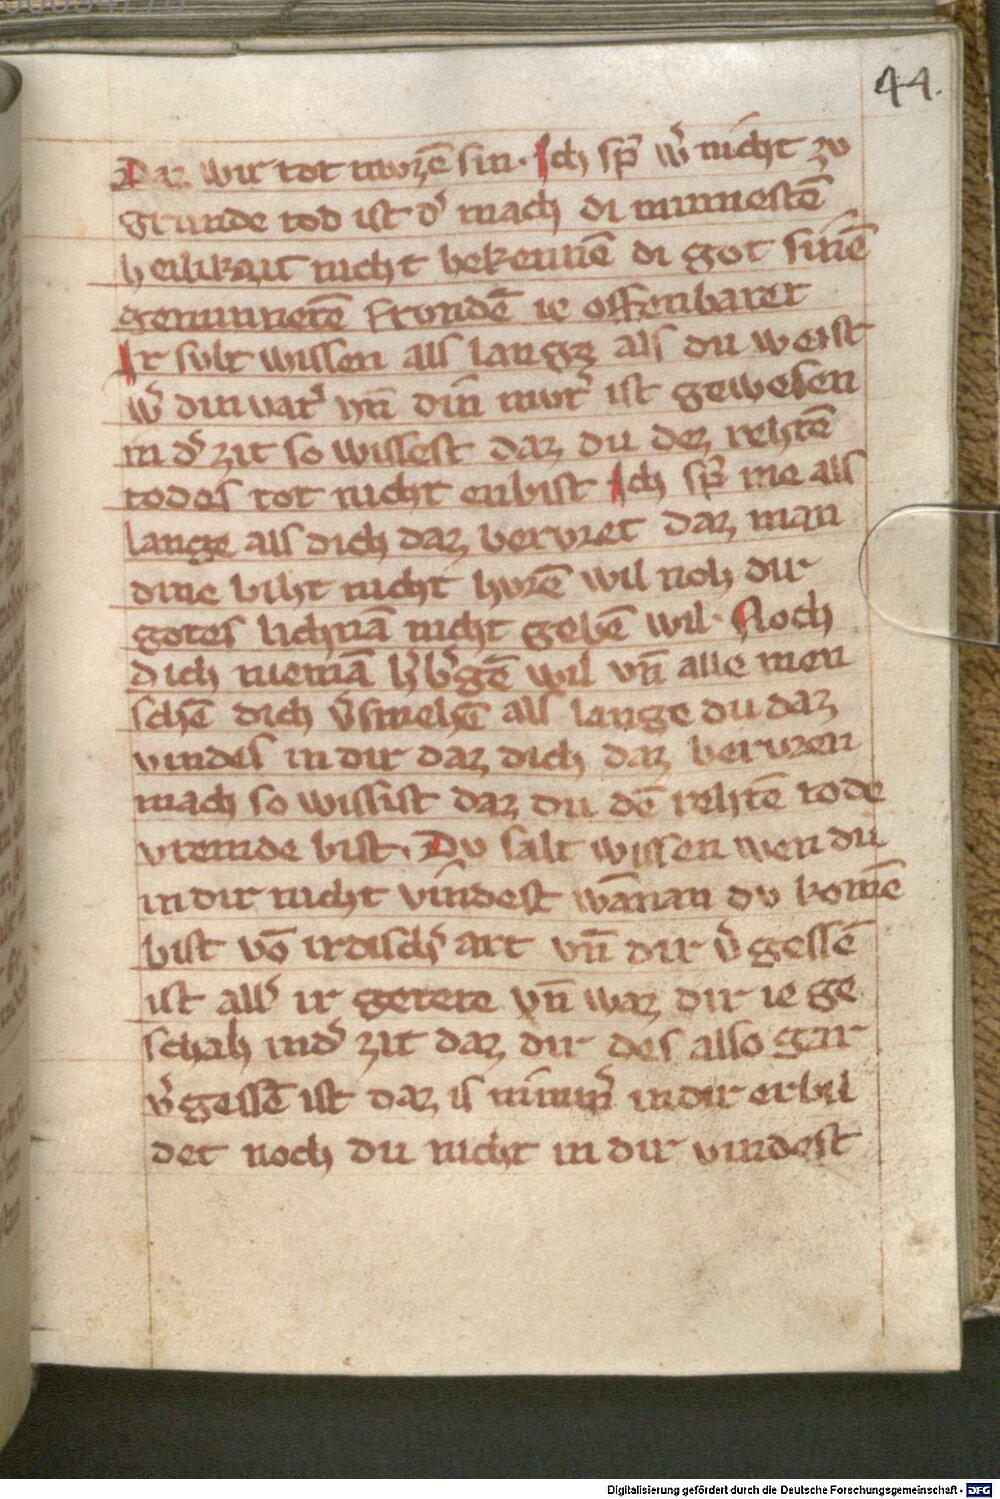 44.
Daz wir tot mvzē sin. Ich sp̄ w̾ nicht zv
grunde tod ist d̾ mach di minnestē
heilikait nicht bekennē di got sinē
geminnetē frondē ie offenbaret
Ir svlt wissen alſ langz alſ du weist
w̾ din vat̾ vn̄ din̄ mvt̾ ist gewesen
in d̾ zit so wissest daz du dez rehtē
todes tot nicht enbist Ich sp̄ me alſ
lange alſ dich daz bervret daz man
dine biht nicht hvrē wil noh dir
gotes lichnā nicht gebē wil. Noch
dich niemā h̾b̾gē wil vn̄ alle men
schē dich v̾smehē alſ lange du daz
vindeſ in dir daz dich daz bervren
mach so wissist daz du dē rehtē tode
vremde bist. Dv salt wissen wen du
in dir nicht vindest wānan dv komē
bist vō irdisch̾ art vn̄ dir v̾gessē
ist all̾ ir getete vn̄ waz dir ie ge
schah ind̾ zit daz dir des also gar
v̾gessē ist daz iſ nimm̾ in dir erbil
det noch du nicht in dir vindest
Digitalisierung gefördert durch die Deutsche Forschungsgemeinschaft - DFG